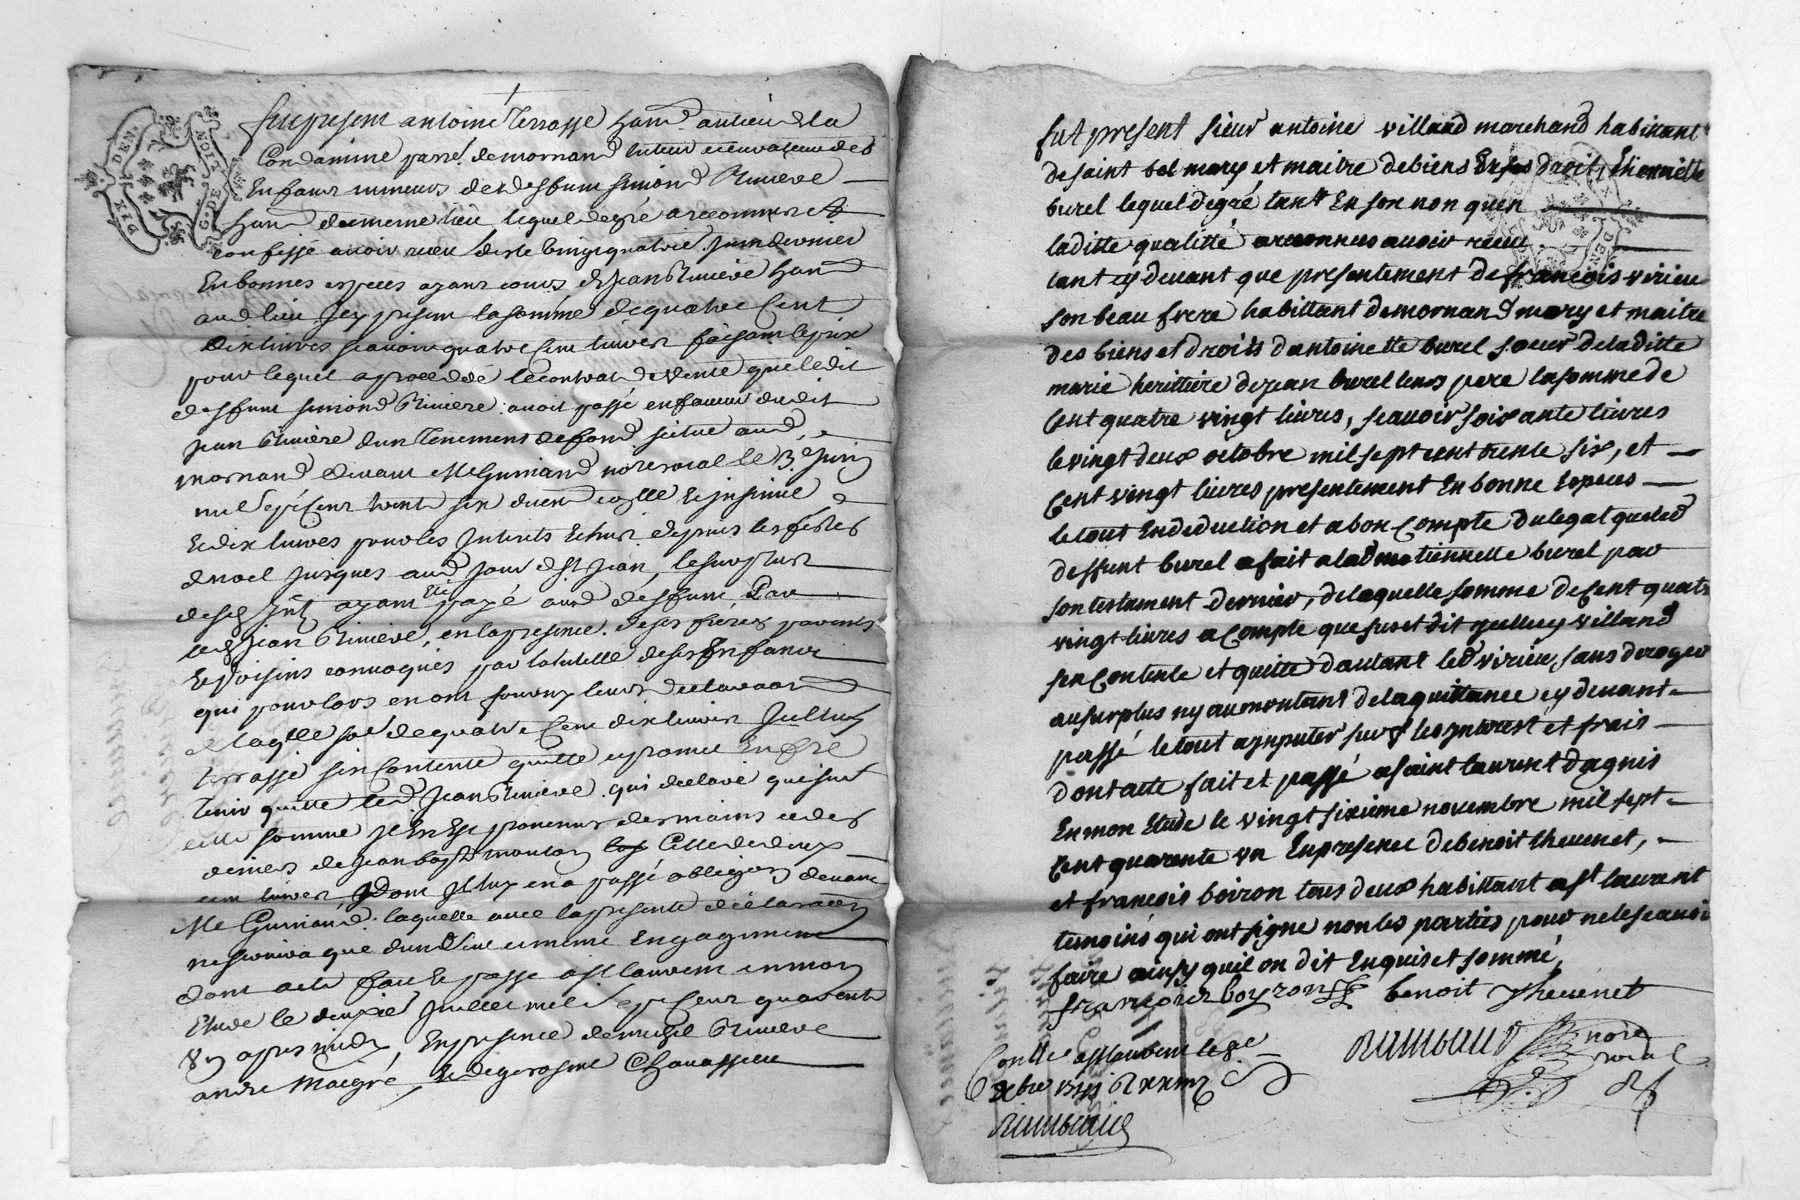 DIX DEN
NOIT
G. DE
fut present antoine Terrasse han. au lieu de la
Condamine parr. de mornand tuteur et curateur des
Enfants mineurs de deffunt simond Riviere
han. du meme lieu lequel de gré a reconnu et
confessé avoir receu des le vingt quatre Juin dernier
En bonnes especes ayant cours de Jean Riviere han
aud lieu Jcy present la somme de quatre Cent
dix livres scavoir quatre cent livres faisant le prix
pour lequel a procedé le contrat de vente que ledit
deffunt simond Riviere avoit passé en faveur dudit
jean Riviere d'un Tenement de fond scitue aud
mornand devant Me Guinand no.re roial le 3e Juin
mil sept Cent trente six duem.t coll.e et insinué
Et dix livres pour les Interets Echus depuis les festes
de noel jusques aud jour de st jean, le surplus
desd Jnt ayant été payé aud deffunt Par
led Jean Riviere, en la presence de ses freres parents
Et voisins convoqués par la tutelle de ses Enfants
qui pour lors en ont fourny leur declaraon
de laq.lle so.e de quatre Cent dix livres Jcelluy
terrasse s'en Contente quitte et promet En f.re
tenir quitte led Jean Riviere. qui declare que sur
cette somme Jl En Est provenus des mains et des
deniers de Jean bapt.e moulon Celle de deux
cent livres, dont Jl luy en a passé obligaon devant
Me Guinand. laquelle avec la presente declaraon
ne servira que d'un seul et meme Engagement
dont acte fait et passe a st laurent en mon
Etude le deuxie Juillet mil sept Cent quarente
Un apres midy En presence de Riviere
andre Maigré, et de gerosme Chavassieu
fut present sieur antoine villard marchand habittant
de saint bel mary et maitre de biens Et droits Ethiennette
burel lequel de gré tant En son non qu'en
laditte qualitté a reconnus avoir receu
tant cy devant que presentement de francois virieu
son beau frere habittant de mornand mary et maitre
des biens et droits d'antoinette burel sœur de laditte
marie herittiere de jean burel leurs pere la somme de
Cent quatre vingt livres, scavoir soixante livres
le vingt deux octobre mil sept cent trente six, et
Cent vingt livres presentement En bonne Especes
le tout En deduction et a bon Compte du legat que led
deffunt burel a fait a lad etiennette burel par
son testament dernier, de laquelle somme de Cent quatre
vingt livres a Compte que sus et dit icelluy villard
s'en Contente et quitte d'autant led virieu, sans deroger
au surplus ny au montant de la quittance cy devant
passé le tout a jnputer sur les ynterest et frais
dont atte fait et passé a saint laurent d'agnis
En mon Etude le vingt sixieme novembre mil sept
Cent quarente un En presence de benoit thevenet,
et francois boiron tous deux habittant a st laurant
temoins qui ont signe non les parties pour ne le scavoir
faire ainsy quil on dit Enquis et sommé,
francois boyron benoit Thevenet
Conllé a st laurent le 8e
Xbre 1741 R xxiiij s
Rimbaud no.re
roial
Rimbaud